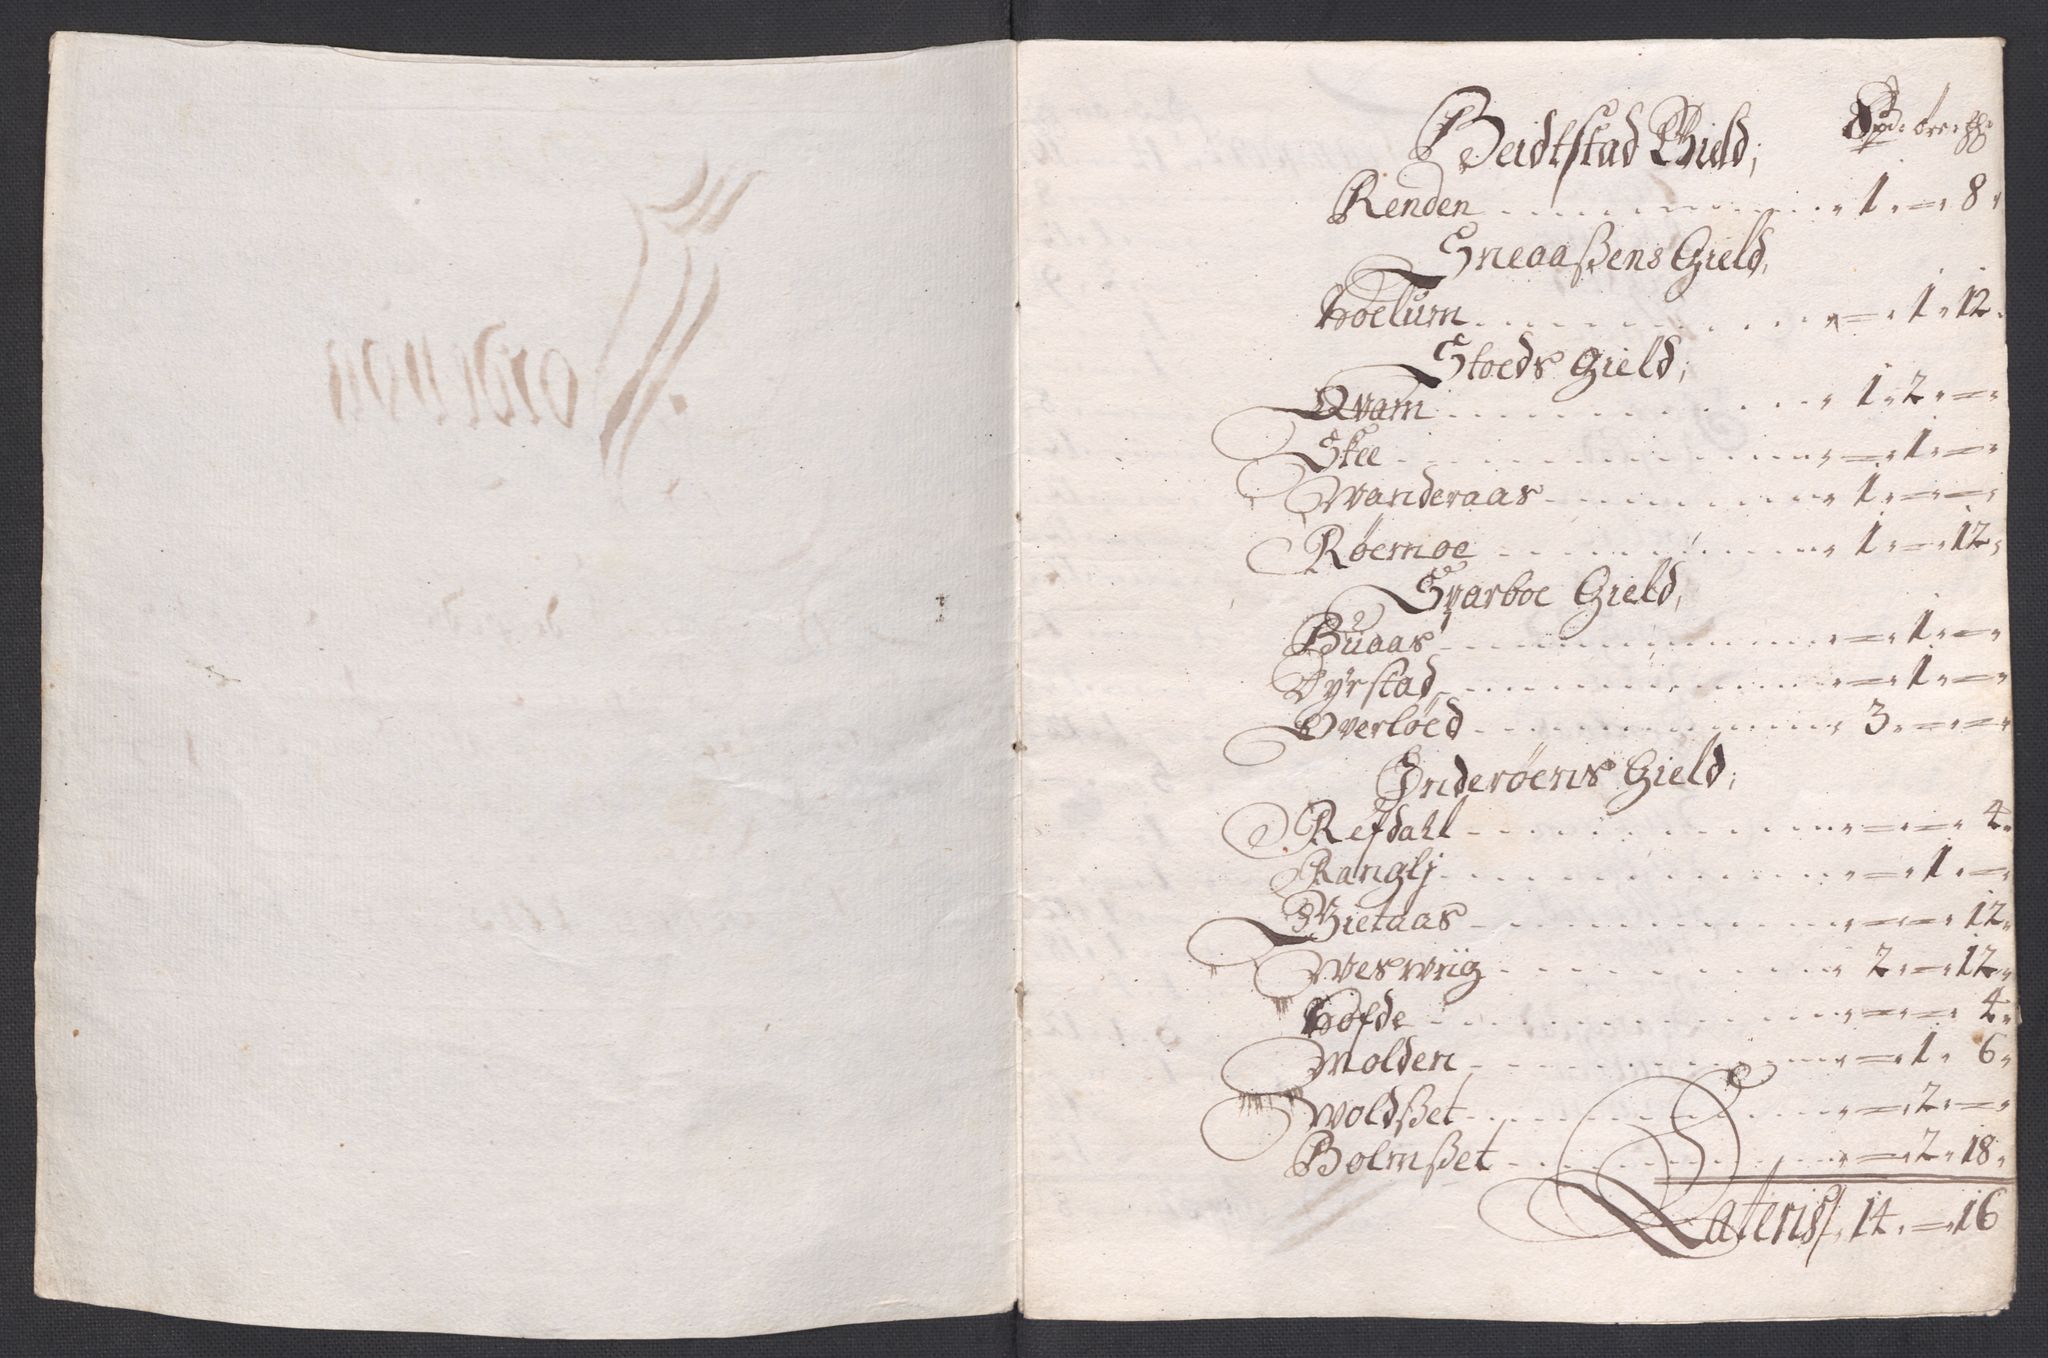 Beidtstad Gield;
Spd: öre: ₰:
Renden 1 " = " 8 "
Sneaaßens Gield,
Hoelum " = " 1 " 12 "
Stoeds Gield;
Qvam 1 " 2 " = "
Skee " = " 1 " = "
Wanderaas 1 " = " = "
Røemoe 1 " = " 12 "
Sparboe Gield,
Buaas " = " 1 " = "
Tyrstad " = " 1 " = "
Overløed 3 " = " = "
Inderøens Gield;
Refdahl " = " = " 4 "
Ranglj " = " 1 " = "
Gietaas " = " = " 12 "
Weswiig 2 " = " 12 "
Hofde " = " = " 4 "
Molden " = " 1 " 6 "
Woldßet " = " 2 " = "
Bolmßet " = " 2 " 18 "
Lateris 14 " = " 16